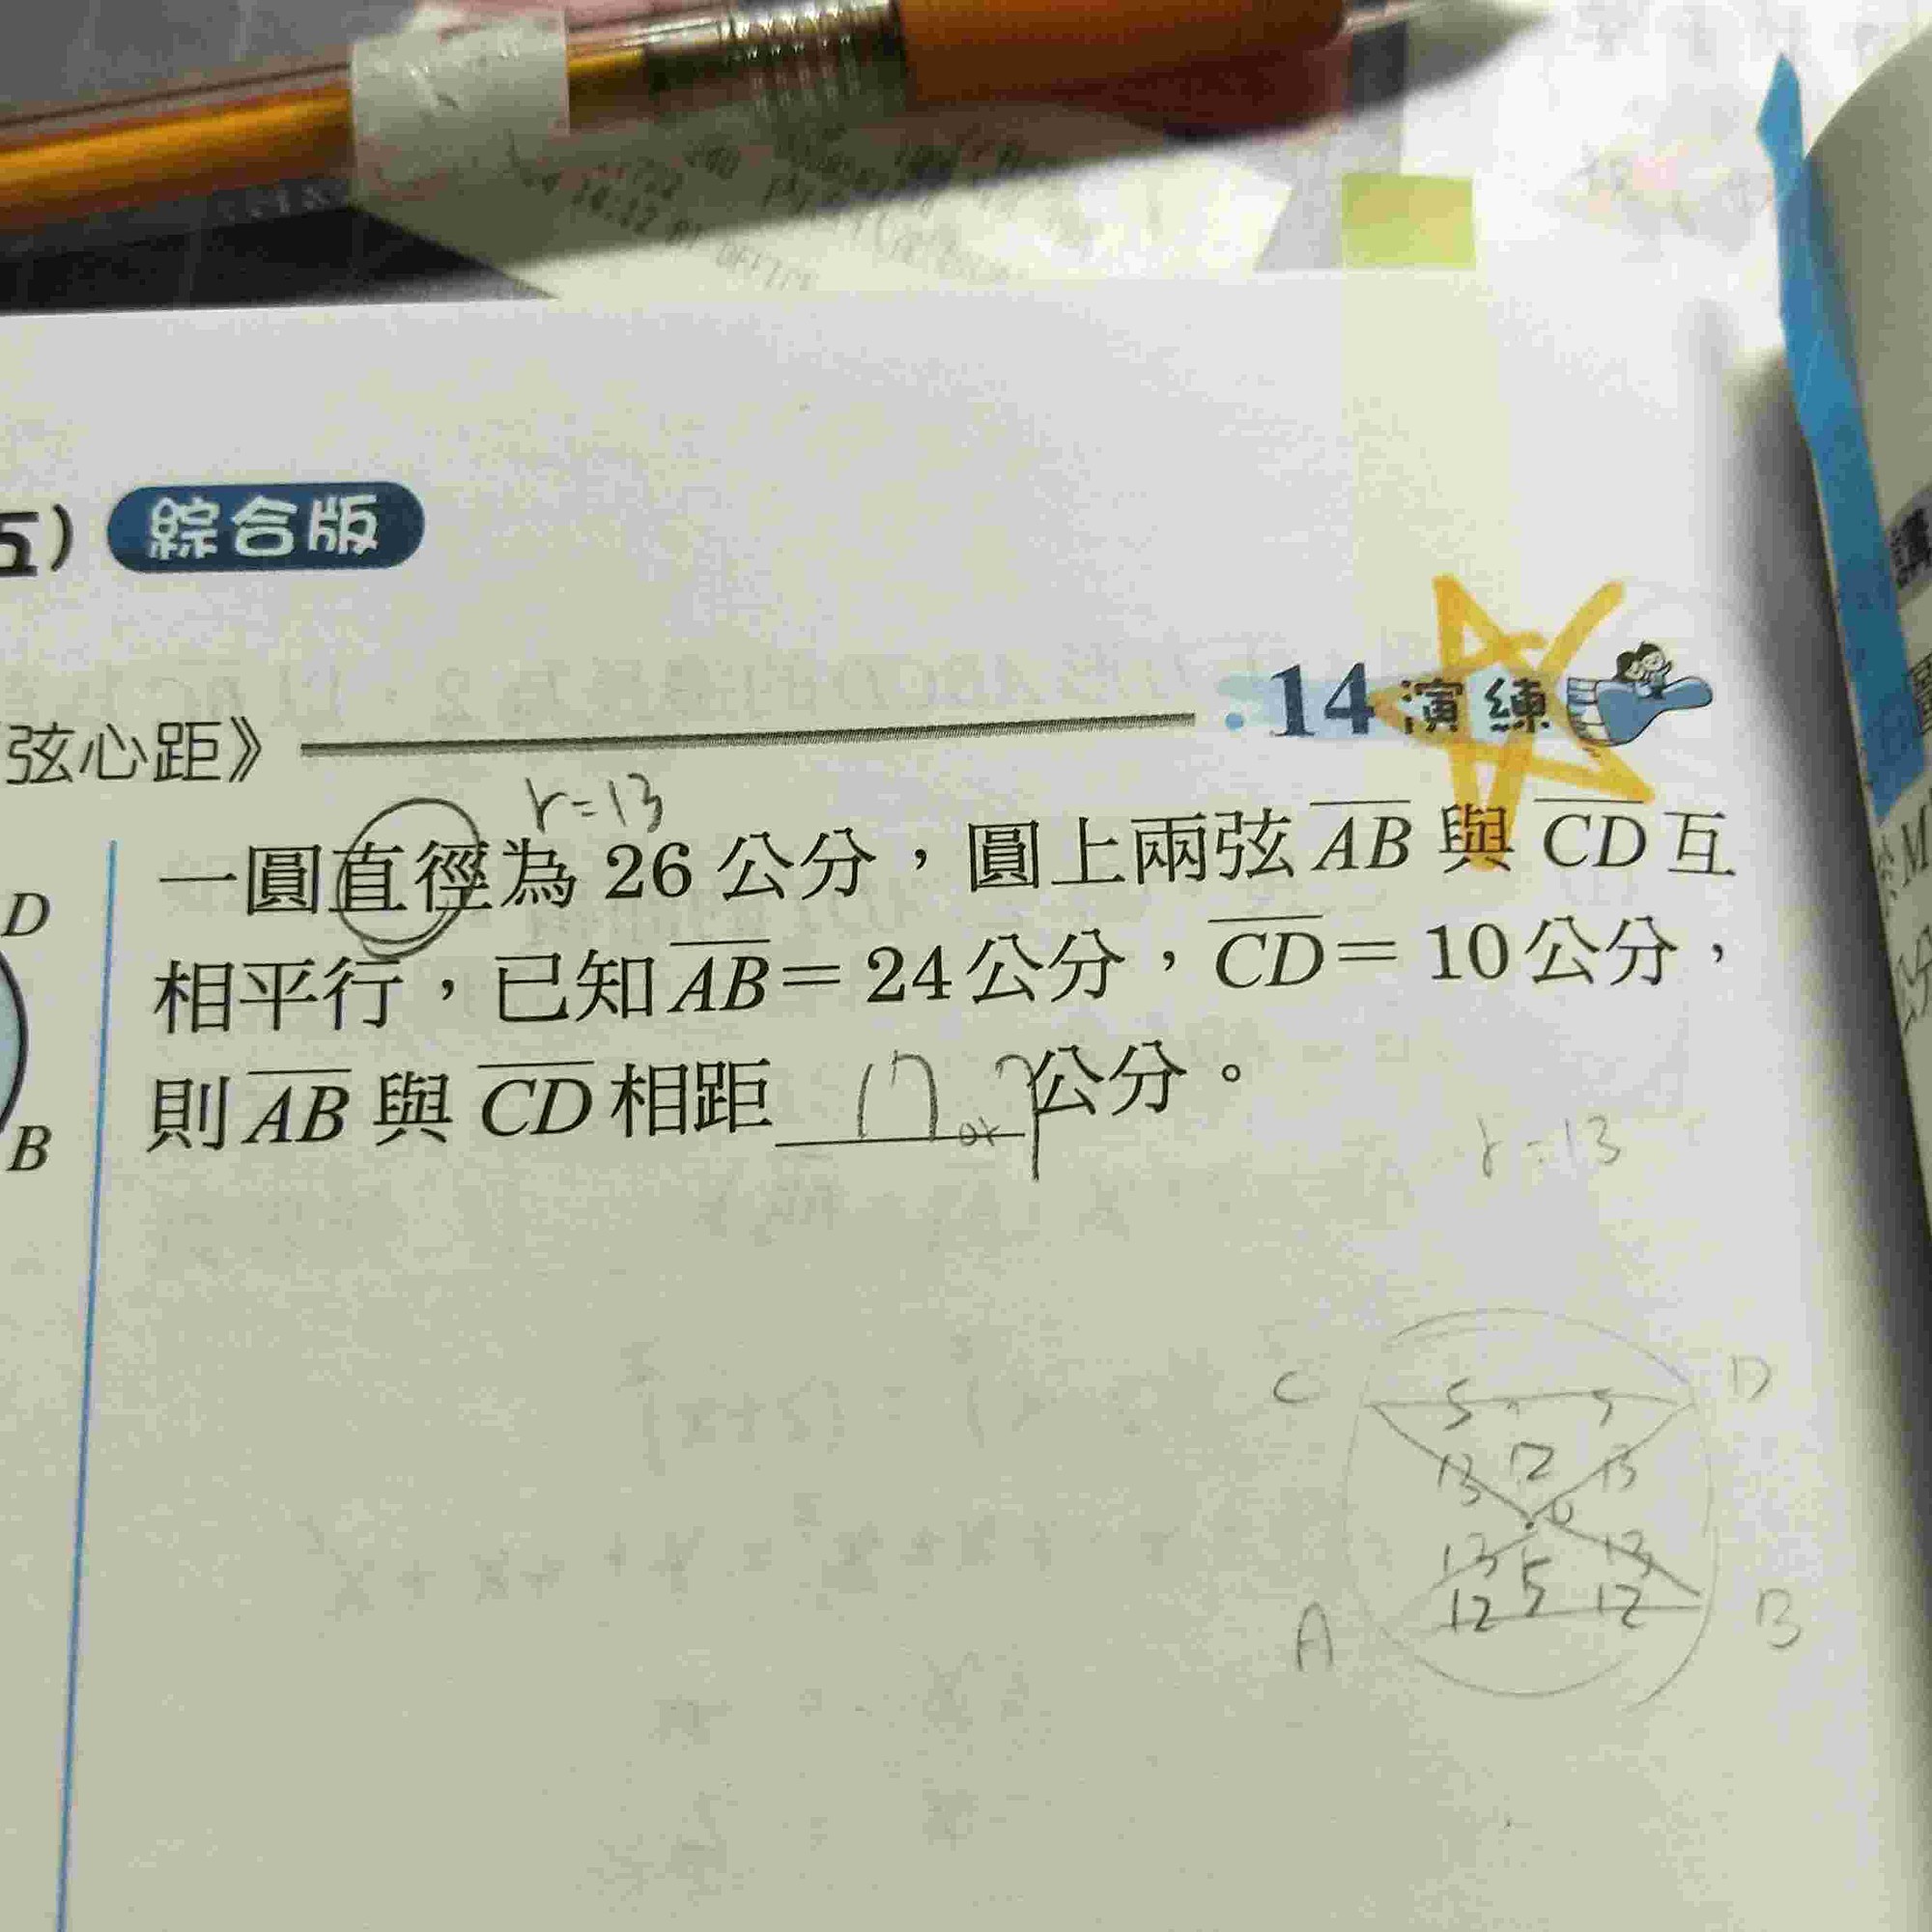 五） 綜合版
弦心距》
14 演練
r=13
一圓直徑為 26 公分，圓上兩弦 AB 與 CD 互
相平行，已知 AB = 24 公分，CD = 10 公分，
則 AB 與 CD 相距 17 or 7 公分。
D
B
r=13
C 5 5 D
13 12 13
O
13 5 13
12 12
A B